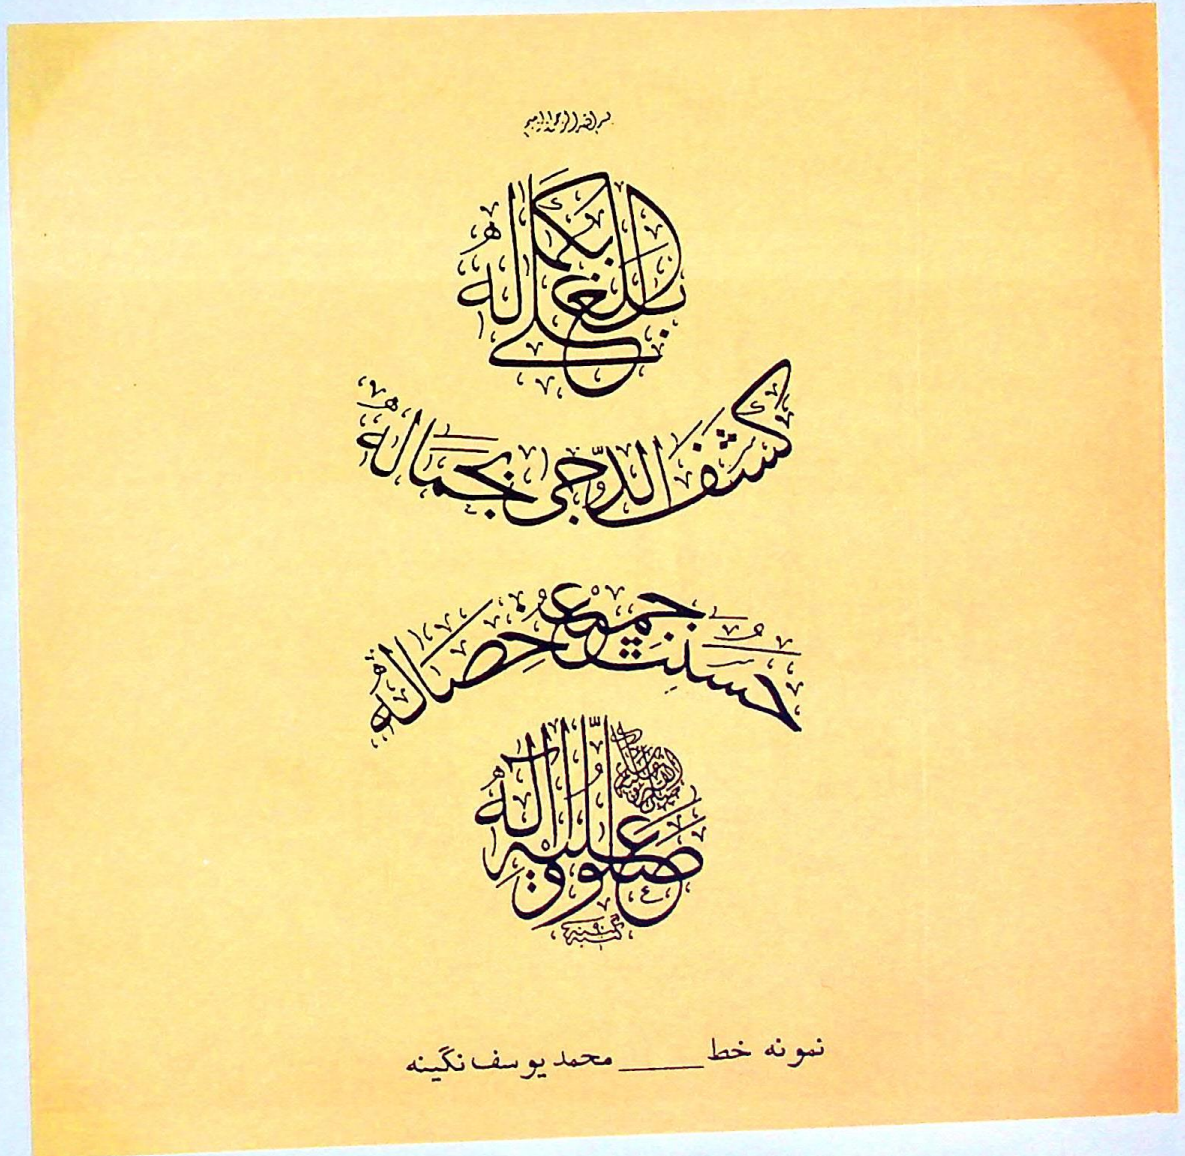 بسم الله الرحمن الرحيم
بلغ العلى بكماله
كشف الدجى بجماله
حسنت جميع خصاله
صلوا عليه وآله
نمونه خط ____ محمد یوسف نگینه